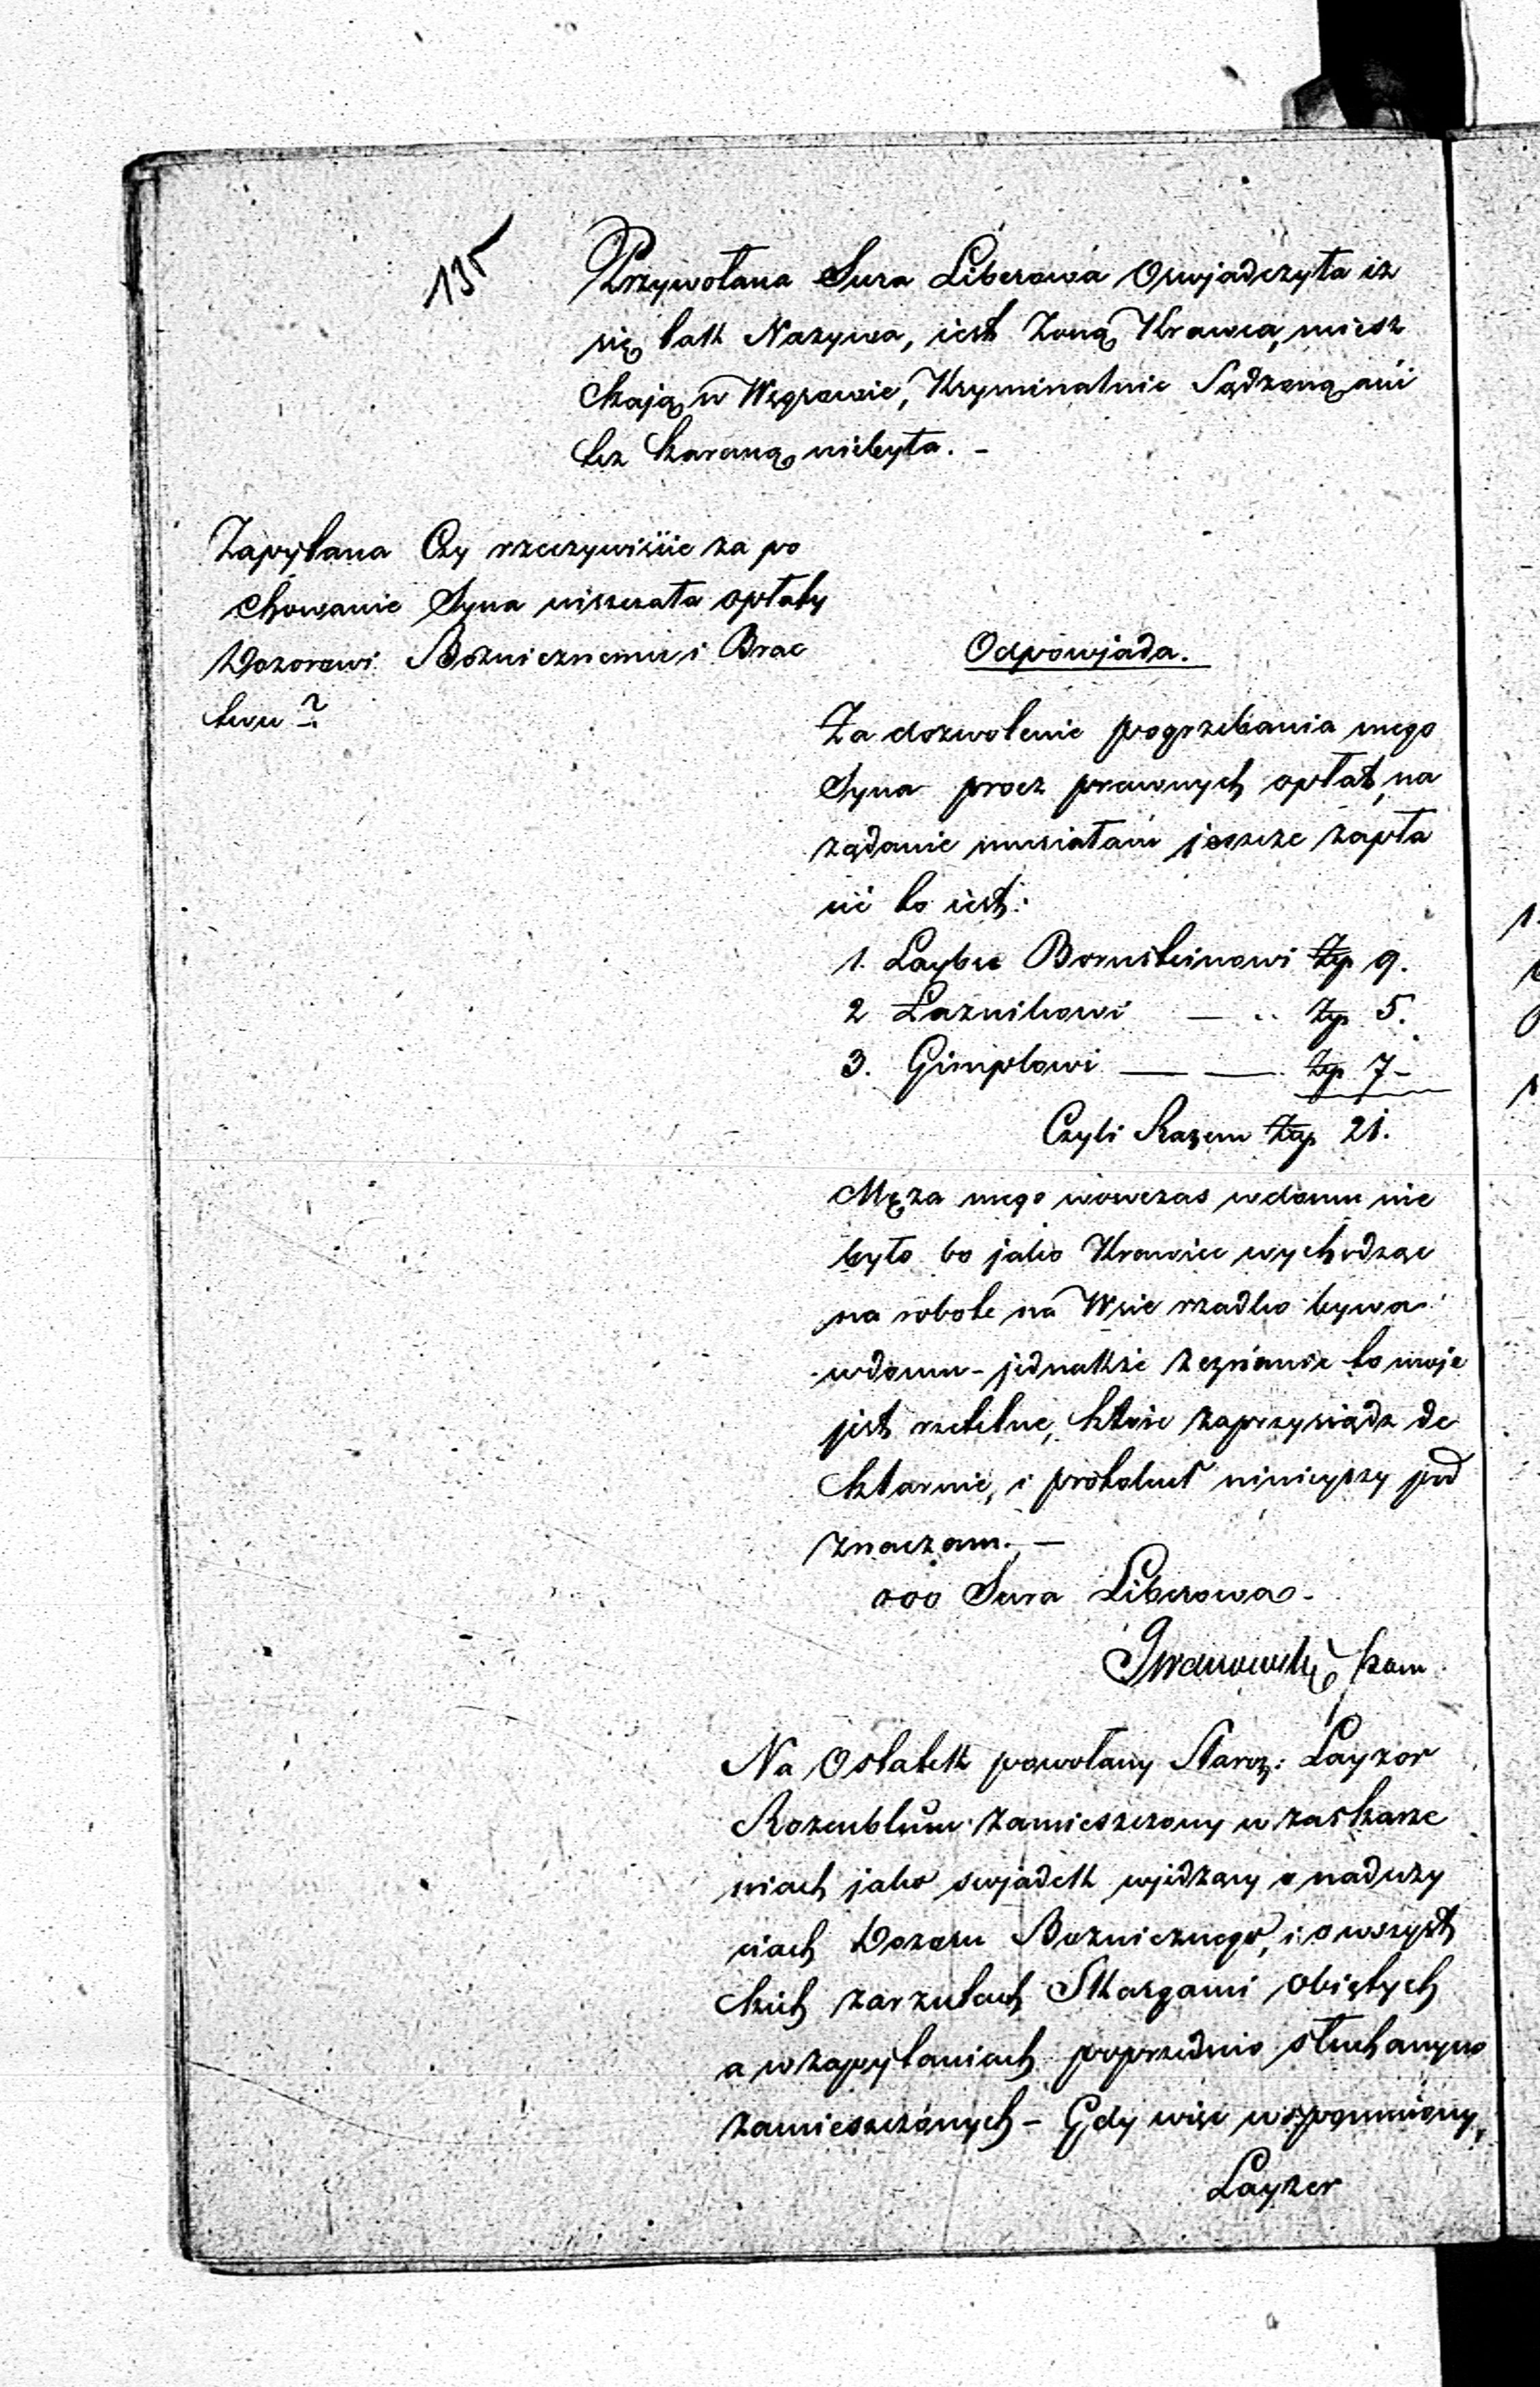 135
Przywołana Sura Liberowa Oswjadczyła iz
się tak Nazywa, iest Zoną Krawca, miesz
kają w Węgrowie, Kryminalnie Sądzoną ani
tez karaną niebyła. -
Zapytana Czy rzeczywiście za po
chowanie Syna uiszczała opłaty
Dozorowi Bożnicznemu i Brac
twu ?
Odpowjada.
Za dozwolenie pogrzebania mego
Syna procz prawnych opłat, na
ządanie musiałam jeszcze zapła
cić to iest:
1. Laybie Bornsteinowi Zp 9.
2 Łaznikowi — .. Zp 5.
3. Gimplowi — — Zp 7 -
Czyli Razem Zp 21.
Męza mego wowczas w domu nie
było bo jako Krawiec wychodząc
na robote na Wsie rzadko bywa
w domu - jednakże zeznanie to moje
jest rzetelne, ktore zaprzysiądz de
klaruie, i protokuł ninieyszy pod
znaczam. —
ooo Sura Liberowa.
Iwanowski
Na Ostatek powołany Staroz: Layzor
Rozenblum zamieszczony w zaskarze
niach jako swjadek wjidzący o naduzy
ciach Dozoru Boznicznego, i o wszyst
kich zarzutach Skargami Obiętych
a w zapytaniach poprzednio słuchanych
zamieszczonych - Gdy więc wspomniony,
Layzer